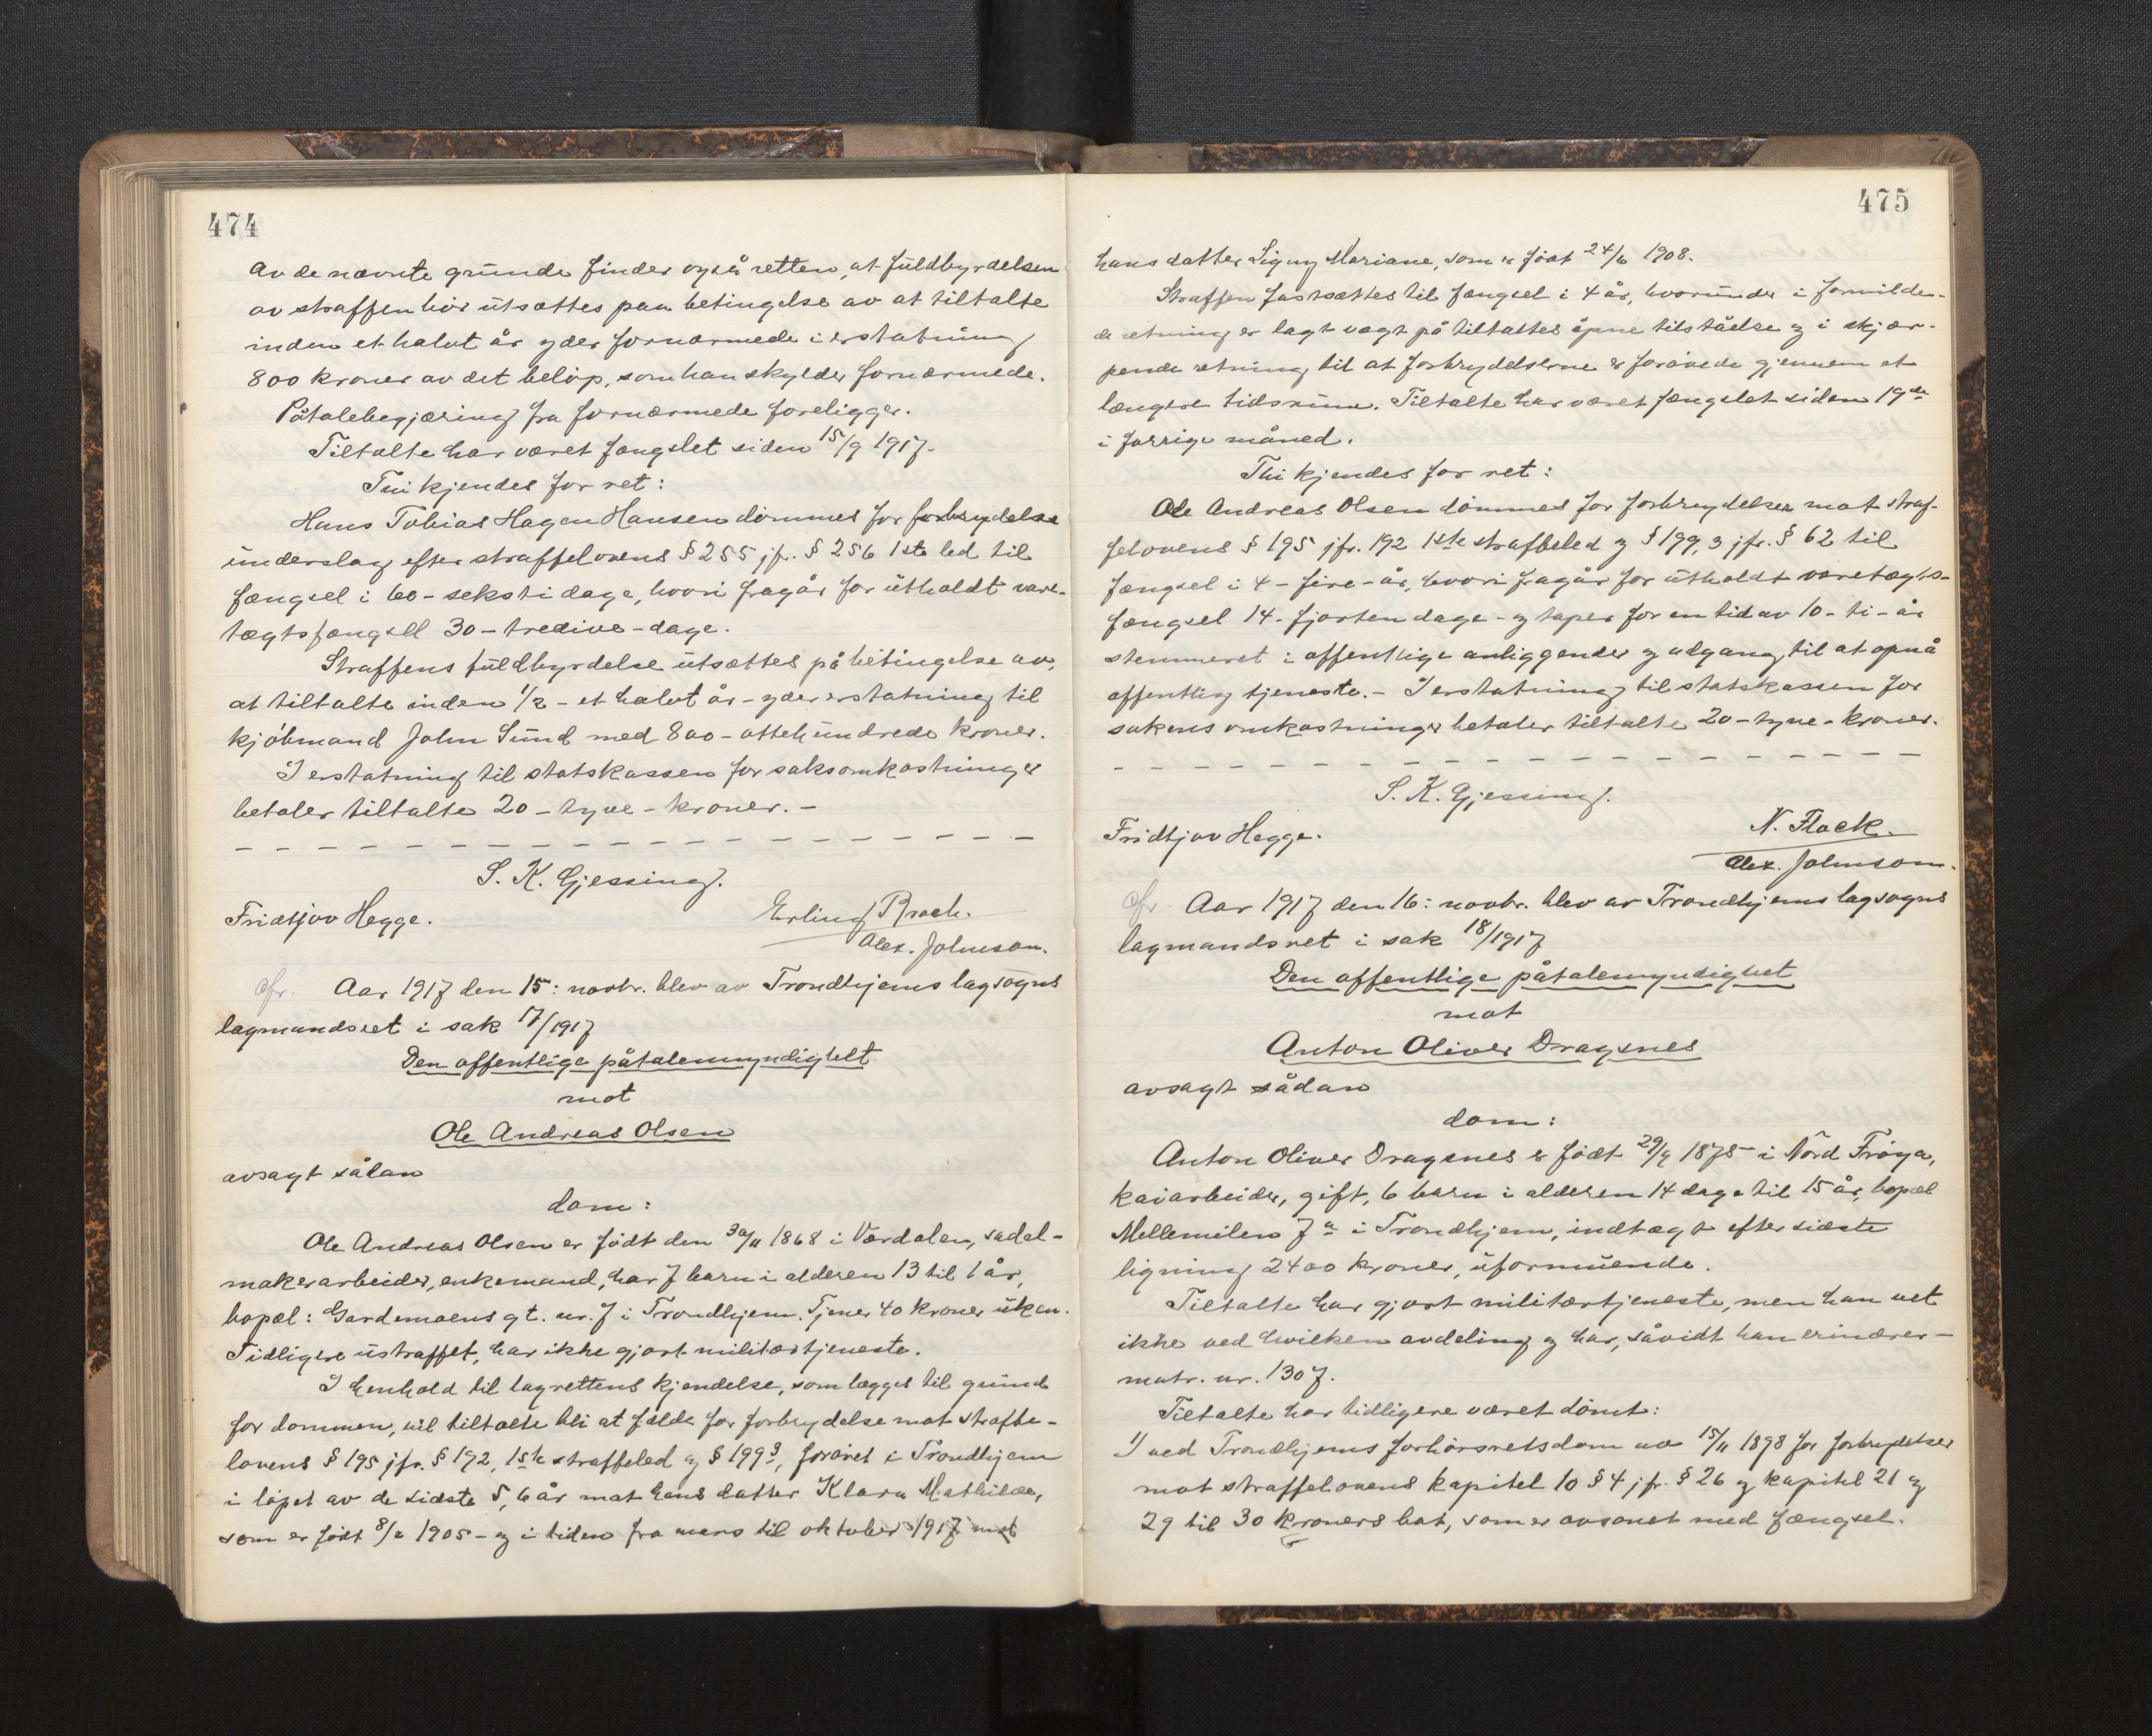 474
Av de nævnte grunde finder også retten, at fuldbyrdelsen
av straffen bör utsættes paa betingelse av at tiltalte
inden et halvt år yder fornærmede i erstatning
800 kroner av det belöp, som han skylder fornærmede.
Påtalebegjæring fra fornærmede foreligger.
Tiltalte har været fængslet siden 15/9 1917.
Thi kjendes for ret:
Hans Tobias Hagen Hansen dömmes for forbrydelse
underslag efter straffelovens § 255 jfr. § 256 1ste led til
fængsel i 60 - seksti dage, hvori fragår for utholdt vare-
tægtsfængsel 30 - tredive - dage.
Straffens fuldbyrdelse utsættes på betingelse av,
at tiltalte inden 1/2 - et halvt år - yder erstatning til
kjöbmand John Sund med 800 - ottehundrede kroner.
I erstatning til statskassen for saksomkostninger
betaler tiltalte 20 - tyve - kroner. -
S. K. Gjessing.
Fridtjov Hegge.
Erling Broch.
Alex. Johnson.
Cfr. Aar 1917 den 15: novbr. blev av Trondhjems lagsogns
lagmandsret i sak 17/1917
Den offentlige påtalemyndighet
mot
Ole Andreas Olsen
avsagt sådan
dom:
Ole Andreas Olsen er födt den 30/11 1868 i Værdalen, sadel-
makerarbeider, enkemand, har 7 barn i alderen 13 til 1 år,
bopæl: Gardemoens gt. nr. 7 i Trondhjem. Tjener 40 kroner uken.
Tidligere ustraffet, har ikke gjort militærtjeneste.
I henhold til lagrettens kjendelse, som lægges til grund
for dommen, vil tiltalte bli at fælde for forbrydelse mot straffe-
lovens § 195 jfr. § 192, 1ste straffeled og § 199 3, forövet i Trondhjem
i löpet av de sidste 5, 6 år mot hans datter Klara Mathilde,
som er födt 8/2 1905 - og i tiden fra mars til oktober 1917 mot
475
hans datter Signy Mariane, som er födt 24/6 1908.
Straffen fastsættes til fængsel i 4 år, hvorunder i formilden-
de retning er lagt vægt på tiltaltes åpne tilståelse og i skjær-
pende retning til at forbrydelserne er forövede gjennem et
længere tidsrum. Tiltalte har været fængslet siden 19de
i forrige måned.
Thi kjendes for ret:
Ole Andreas Olsen dömmes for forbrydelser mot straf-
felovens § 195 jfr. 192 1ste straffeled og § 199, 3 jfr. § 62 til
fængsel i 4 - fire - år, hvori fragår for utholdt varetægts-
fængsel 14 - fjorten dage - og taper for en tid av 10 - ti - år
stemmeret i offentlige anliggender og adgang til at opnå
offentlig tjeneste. - I erstatning til statskassen for
sakens omkostninger betaler tiltalte 20 - tyve - kroner.
S. K. Gjessing.
Fridtjov Hegge.
N. Flack.
Alex. Johnson.
Cfr. Aar 1917 den 16: novbr. blev av Trondhjems lagsogns
lagmandsret i sak 18/1917
Den offentlige påtalemyndighet
mot
Anton Oliver Dragsnes
avsagt sådan
dom:
Anton Oliver Dragsnes er födt 29/9 1875 i Nord Fröya,
kaiarbeider, gift, 6 barn i alderen 14 dage til 15 år, bopæl
Mellemilen 7 a i Trondhjem, indtægt efter sidste
ligning 2400 kroner, uformuende.
Tiltalte har gjort militærtjeneste, men han vet
ikke ved hvilken avdeling og har, såvidt han erindrer -
matr. nr. 1307.
Tiltalte har tidligere været dömt:
1) ved Trondhjems forhörsretsdom av 15/11 1898 for forbrydelser
mot straffelovens kapitel 10 § 4 jfr. § 26 og kapitel 21 §
29 til 30 kroners bot, som er avsonet med fængsel.